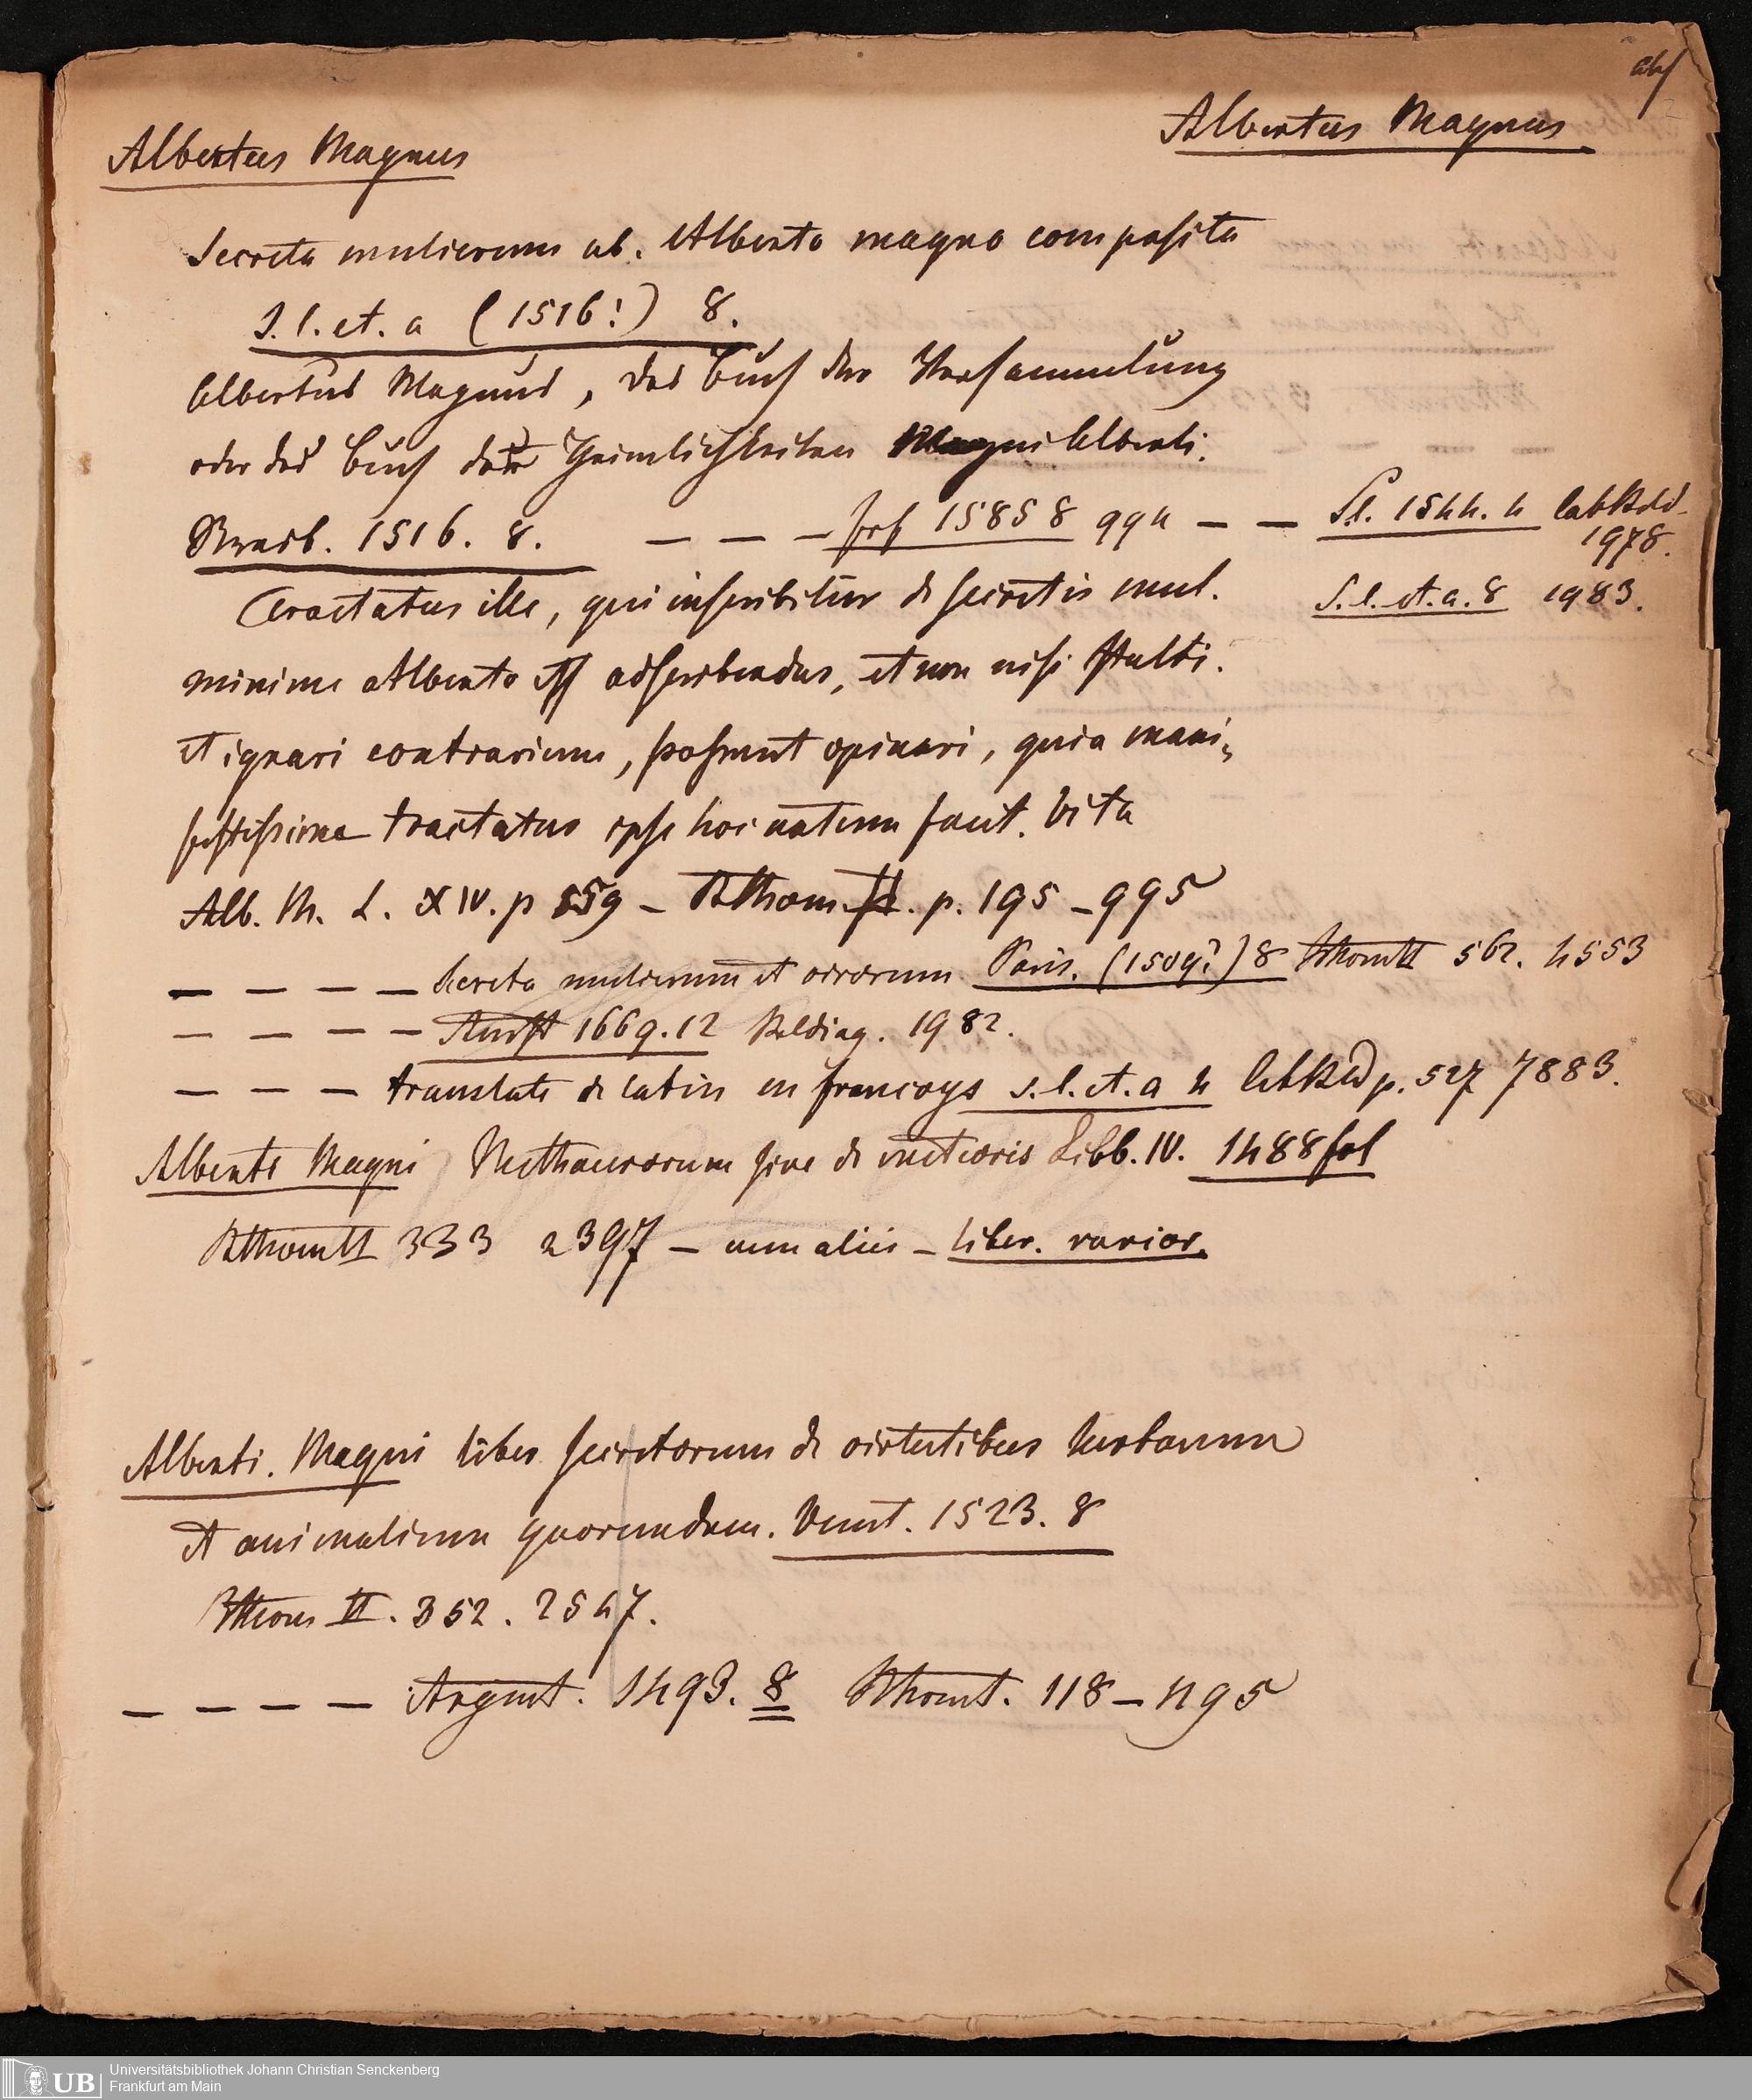 Albertus Magnus
Albertus Magnus
Secreta mulierum ab. Alberto magno composita
S. l. et. a (1516!) 8.
Albertus Magnus, das Buch der Versammlung
oder das Buch der Heimlichkeiten Magni Alberti.
Strasb. 1516. 8. — — — frf 1585 8 994 — — S.l. 1544. 4
1978.
Tractatus ille, qui inscribitur de secretis mul. S. l. et. a. 8 1983.
minime Alberto est adscribendus, et non nisi stulti.
et ignari contrarium, possunt opinari, quia mani-
festissime tractatus ipse hoc notum facit. Vita
Alb. M. L. XIV. p 559 — BThom II. p. 195 — 995
— — — — Secreta mulierum et virorum Paris. (1509?) 8 BThom II 562. 4553
— — — — Amst 1669. 12 1982.
— — — translate de latin en francoys s. l. et. a 4 p. 527 7883.
Alberti Magni Metheurorum sive de meteoris Libb. IV. 1488 fol
BThom II 333 2397 — cum aliis — liber. rarior.
Alberti. Magni liber secretorum de virtutibus herbarum
et animalium quorumdam. Venet. 1523. 8
BThom II. 352. 2547.
— — — — Argent. 1493. 8 BThom I. 118 — 1195
UB
Universitätsbibliothek Johann Christian Senckenberg
Frankfurt am Main